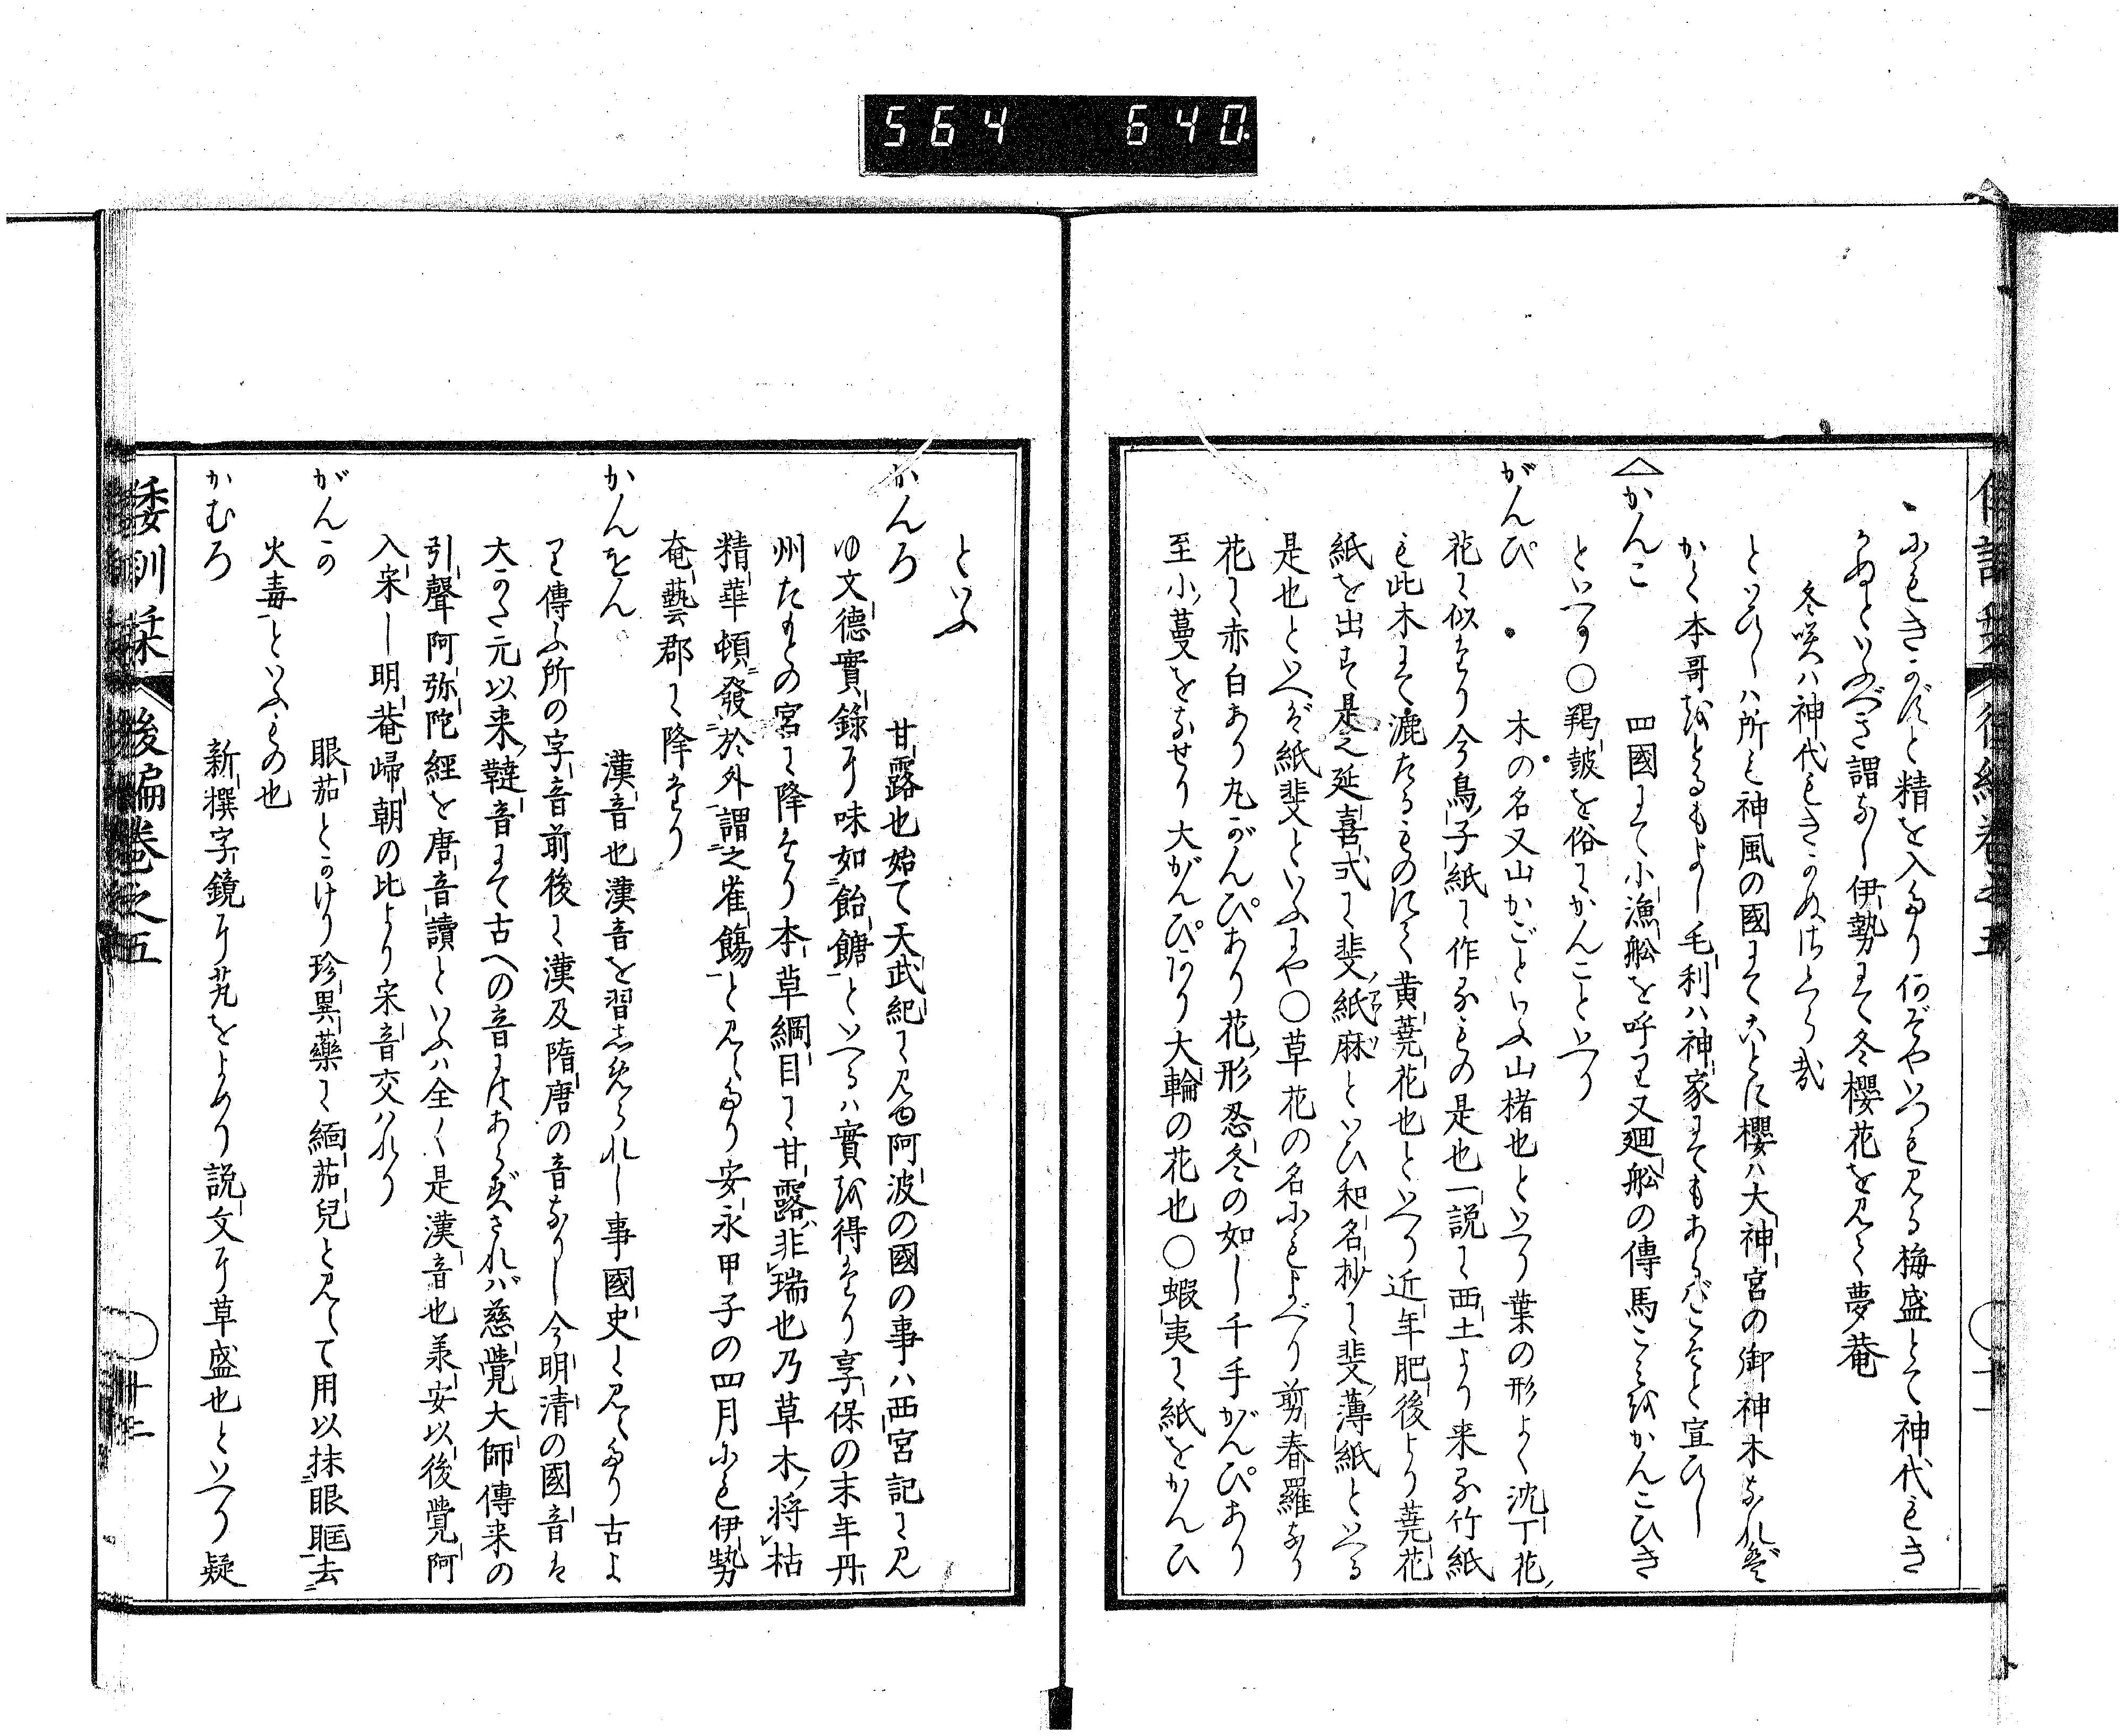 564 640
にもきかずと精を入たり何ぞやいつも見る梅盛とて神代もき
かぬといふべき謂なし伊勢にて冬櫻花を見て夢菴
冬咲ハ神代もきかぬさくら哉
といひしハ所も神風の國にてことに櫻ハ大神宮の御神木なれバ
かく本哥をとるもよし毛利ハ神家にてもあらバこそと宣ひし
かんこ 四國にて小漁舩を呼り又廻舩の傳馬こみをかんこひき
といへり○羯皷を俗にかんこといへり
がんぴ 木の名又山かごといふ山楮也といへり葉の形よく沈丁花
花に似たり今鳥子紙に作るもの是也一説に西土より来る竹紙
も此木にて漉たるものにて黄蕘花也といへり近年肥後より蕘花
紙を出す是也延喜式に斐紙麻といひ和名抄に斐薄紙といへる
是也といへバ紙斐といふにや○草花の名にもよべり剪春羅なり
花に赤白あり丸がんぴあり花形忍冬の如し千手がんぴあり
至小蔓をなせり大がんぴあり大輪の花也○蝦夷に紙をかんひ
といふ
かんろ 甘露也始て天武紀に見ゆ阿波の國の事ハ西宮記に見
ゆ文德實錄に味如飴餹といへるハ實を得たり享保の末年丹
州たもとの宮に降たり本草綱目に甘露非瑞也乃草木將枯
精華頓發於外謂之雀餳と見えたり安永甲子の四月にも伊勢
奄藝郡に降たり
かんをん 漢音也漢音を習志免られし事國史に見えたり古よ
り傳ふ所の字音前後に漢及隋唐の音なりし今明清の國音は
大かた元以来韃音にて古への音にはあらずされバ慈覺大師傳来の
引聲阿弥陀経を唐音讀といふハ全く是漢音也羕安以後覺阿
入宋し明菴歸朝の比より宋音交ハれり
がんか 眼茄とかけり珍異藥に緬茄兒と見えて用以抹眼眶去
火毒といふもの也
かむろ 新撰字鏡に艽をよめり説文に草盛也といへり疑
倭訓栞 後編卷之五 十二